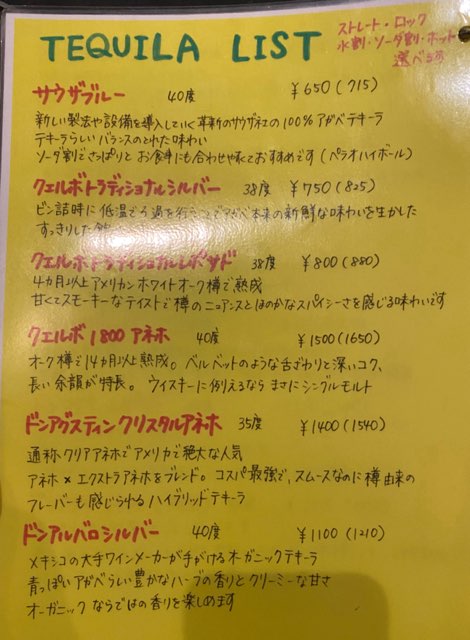 TEQUILA LIST
ストレート・ロック
水割・ソーダ割・ホット
選べます
サウザブルー 40度 ¥650(715)
新しい製法や設備を導入していく革新のサウザ社の100%アガベテキーラ
テキーラらしいバランスのとれた味わい
ソーダ割でさっぱりと お食事にも合わせやすくておすすめです(ペラオハイボール)
クエルボトラディショナルシルバー 38度 ¥750(825)
ビン詰時に低温でろ過を行うことでアガベ本来の新鮮な味わいを生かした
すっきりした
クエルボトラディショナルレポサド 38度 ¥800(880)
4カ月以上アメリカンホワイトオーク樽で熟成
甘くてスモーキーなテイストで樽のニュアンスとほのかなスパイシーさを感じる味わいです
クエルボ1800アネホ 40度 ¥1500(1650)
オーク樽で14カ月以上熟成。ベルベットのような舌ざわりと深いコク、
長い余韻が特長。 ウイスキーに例えるなら まさにシングルモルト
ドンアグスティンクリスタルアネホ 35度 ¥1400(1540)
通称クリアアネホでアメリカで絶大な人気
アネホ×エクストラアネホをブレンド。コスパ最強で、スムースなのに樽由来の
フレーバーも感じられるハイブリッドテキーラ
ドンアルバロシルバー 40度 ¥1100(1210)
メキシコの大手ワインメーカーが手がけるオーガニックテキーラ
青っぽいアガベらしい豊かなハーブの香りとクリーミーな甘さ
オーガニックならではの香りを楽しめます